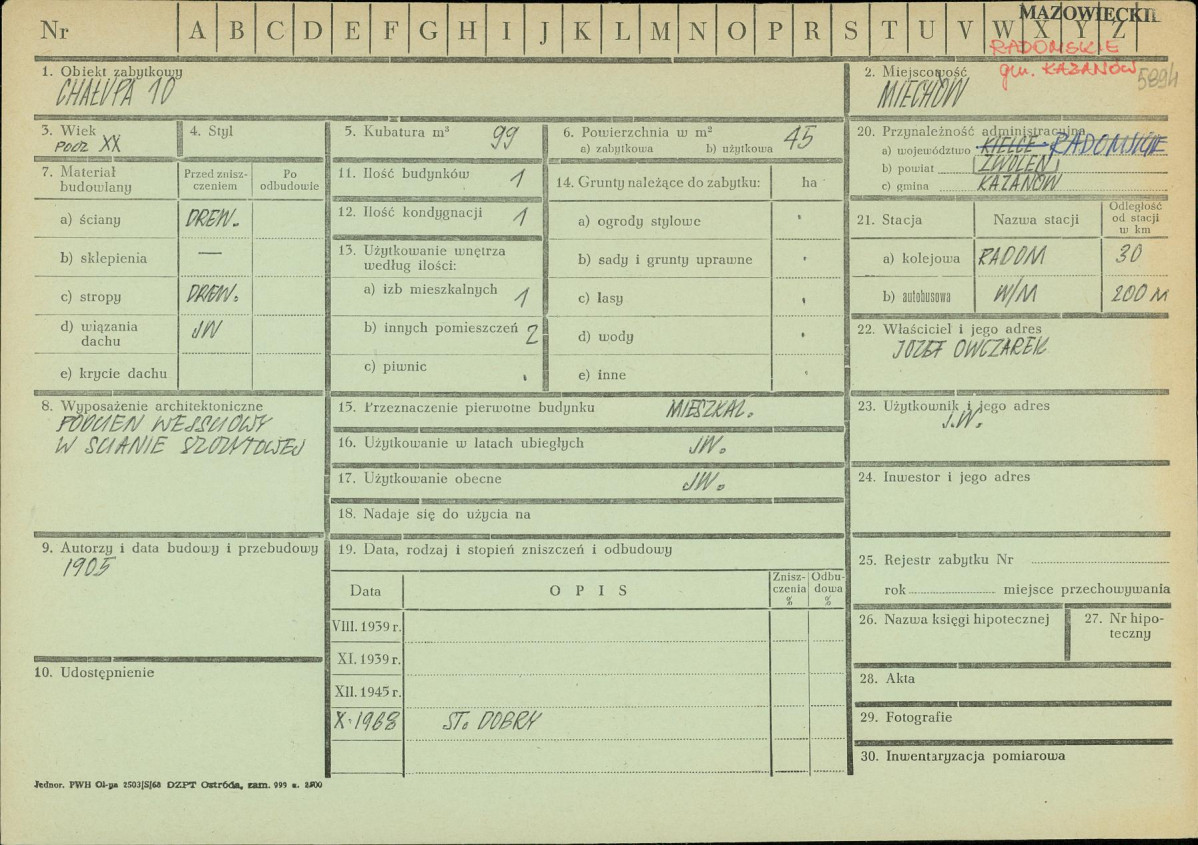 MAZOWIECKIE
Nr A B C D E F G H I J K L M N O P R S T U V W X Y Z
RADOMSKIE
gm. KAZANÓW
5894
1. Obiekt zabytkowy
CHAŁUPA 10
2. Miejscowość
MIECHÓW
3. Wiek
POCZ XX
4. Styl
5. Kubatura m³ 99
6. Powierzchnia w m² 45
a) zabytkowa b) użytkowa
20. Przynależność administracyjna
a) województwo KIELCE RADOMSKIE
b) powiat ZWOLEŃ
c) gmina KAZANÓW
7. Materiał budowlany
Przed zniszczeniem
Po odbudowie
a) ściany DREW.
b) sklepienia —
c) stropy DREW.
d) wiązania dachu JW
e) krycie dachu
11. Ilość budynków 1
12. Ilość kondygnacji 1
13. Użytkowanie wnętrza według ilości:
a) izb mieszkalnych 1
b) innych pomieszczeń 2
c) piwnic
14. Grunty należące do zabytku: ha
a) ogrody stylowe
b) sady i grunty uprawne
c) lasy
d) wody
e) inne
21. Stacja Nazwa stacji Odległość od stacji w km
a) kolejowa RADOM 30
b) autobusowa W/M 200 M
22. Właściciel i jego adres
JOZEF OWCZAREK
8. Wyposażenie architektoniczne
PODCIEN WEJSCIOWY
W SCIANIE SZCZYTOWEJ
15. Przeznaczenie pierwotne budynku MIESZKAL.
16. Użytkowanie w latach ubiegłych JW.
17. Użytkowanie obecne JW.
18. Nadaje się do użycia na
23. Użytkownik i jego adres
J.W.
24. Inwestor i jego adres
9. Autorzy i data budowy i przebudowy
1905
19. Data, rodzaj i stopień zniszczeń i odbudowy
Data OPIS Zniszczenia % Odbudowa %
VIII. 1939 r.
XI. 1939 r.
XII. 1945 r.
X. 1968 ST. DOBRY
25. Rejestr zabytku Nr
rok miejsce przechowywania
26. Nazwa księgi hipotecznej
27. Nr hipoteczny
10. Udostępnienie
28. Akta
29. Fotografie
30. Inwentaryzacja pomiarowa
Jednor. PWH Ol-pa 2503/S/68 DZPT Ostróda, zam. 999 n. 2500